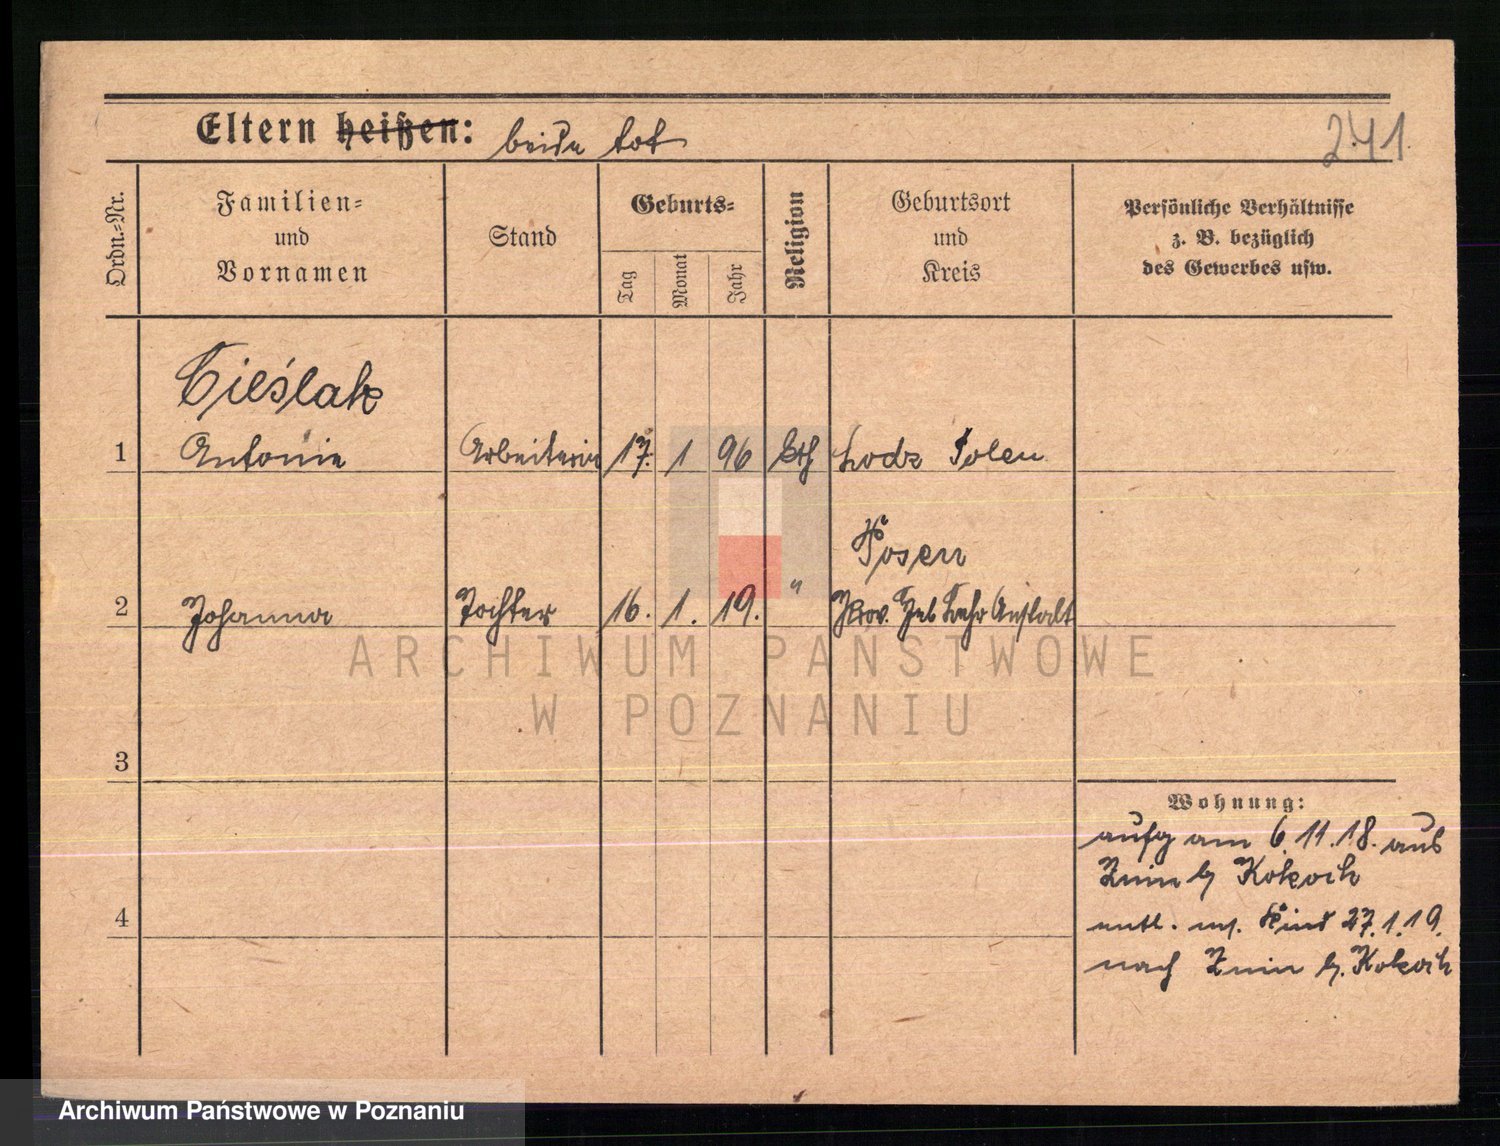 Eltern heißen: beide tot
241
Ordn.-Nr.
Familien-
und
Vornamen
Stand
Geburts-
Tag
Monat
Jahr
Religion
Geburtsort
und
Kreis
Persönliche Verhältnisse
z. B. bezüglich
des Gewerbes usw.
Cieślak
1 Antonie Arbeiterin 17. 1 96 kth Lodz Polen
Posen
2 Johanna Tochter 16. 1. 19. " Prov. Heb Lehr Anstalt
3
4
Wohnung:
aufg am 6.11.18. aus
Znin b/ Kokoik
entl. m. Kind 27.1.19.
nach Znin b/. Kokoik
ARCHIWUM PAŃSTWOWE
W POZNANIU
Archiwum Państwowe w Poznaniu